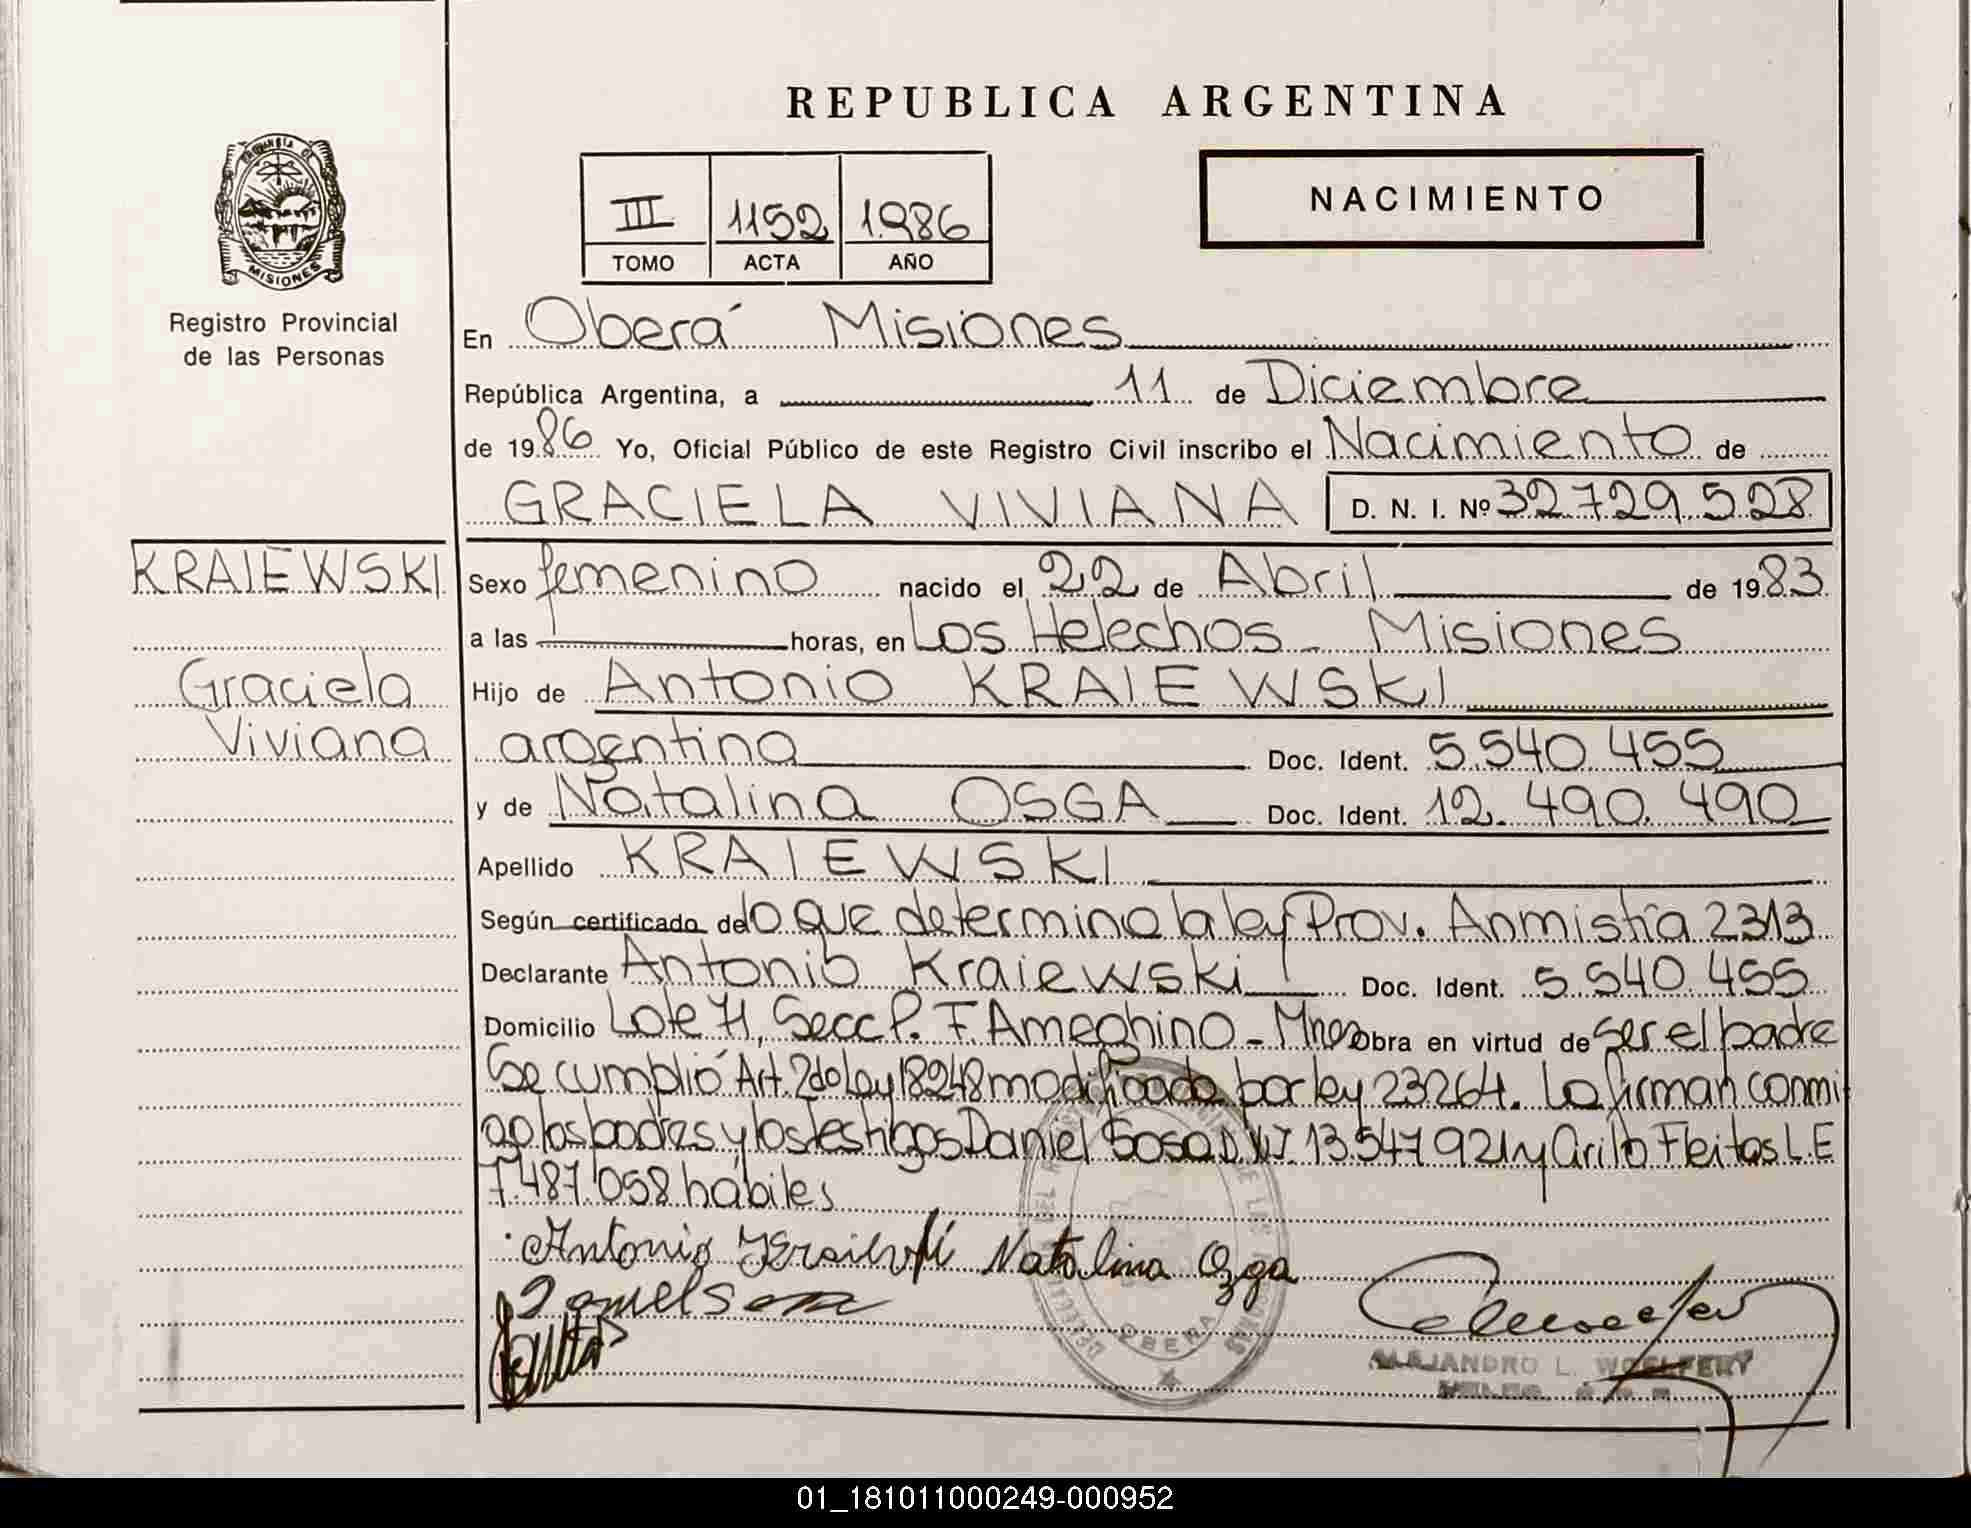 REPUBLICA ARGENTINA
PROVINCIA DE
MISIONES
Registro Provincial
de las Personas
III 1152 1986
TOMO ACTA AÑO
NACIMIENTO
En Oberá Misiones
República Argentina, a 11 de Diciembre
de 1986 Yo, Oficial Público de este Registro Civil inscribo el Nacimiento de
GRACIELA VIVIANA D. N. I. Nº 32.729.528
KRAIEWSKI
Graciela
Viviana
Sexo femenino nacido el 22 de Abril de 1983
a las horas, en Los Helechos - Misiones
Hijo de Antonio KRAIEWSKI
argentina Doc. Ident. 5.540.455
y de Natalina OSGA Doc. Ident. 12.490.490
Apellido KRAIEWSKI
Según certificado de lo que determina la ley Prov. Anmistía 2313
Declarante Antonio Kraiewski Doc. Ident. 5.540.455
Domicilio Lote 71, Secc P. F. Ameghino - Mnes Obra en virtud de ser el padre
Se cumplió Art. 2 de Ley 18248 modificada por ley 23264. La firman conmi
go los padres y los testigos Daniel Sosa D.N.I. 13.547.921 y Arilo Fleitas L.E
7.487.058 hábiles
Antonio Natalina Ozga
OBERA
ALEJANDRO L.
01_181011000249-000952